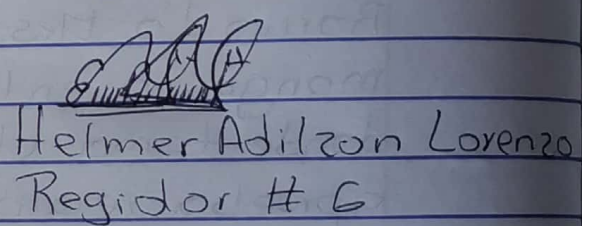 Helmer Adilzon Lorenzo
Regidor # 6